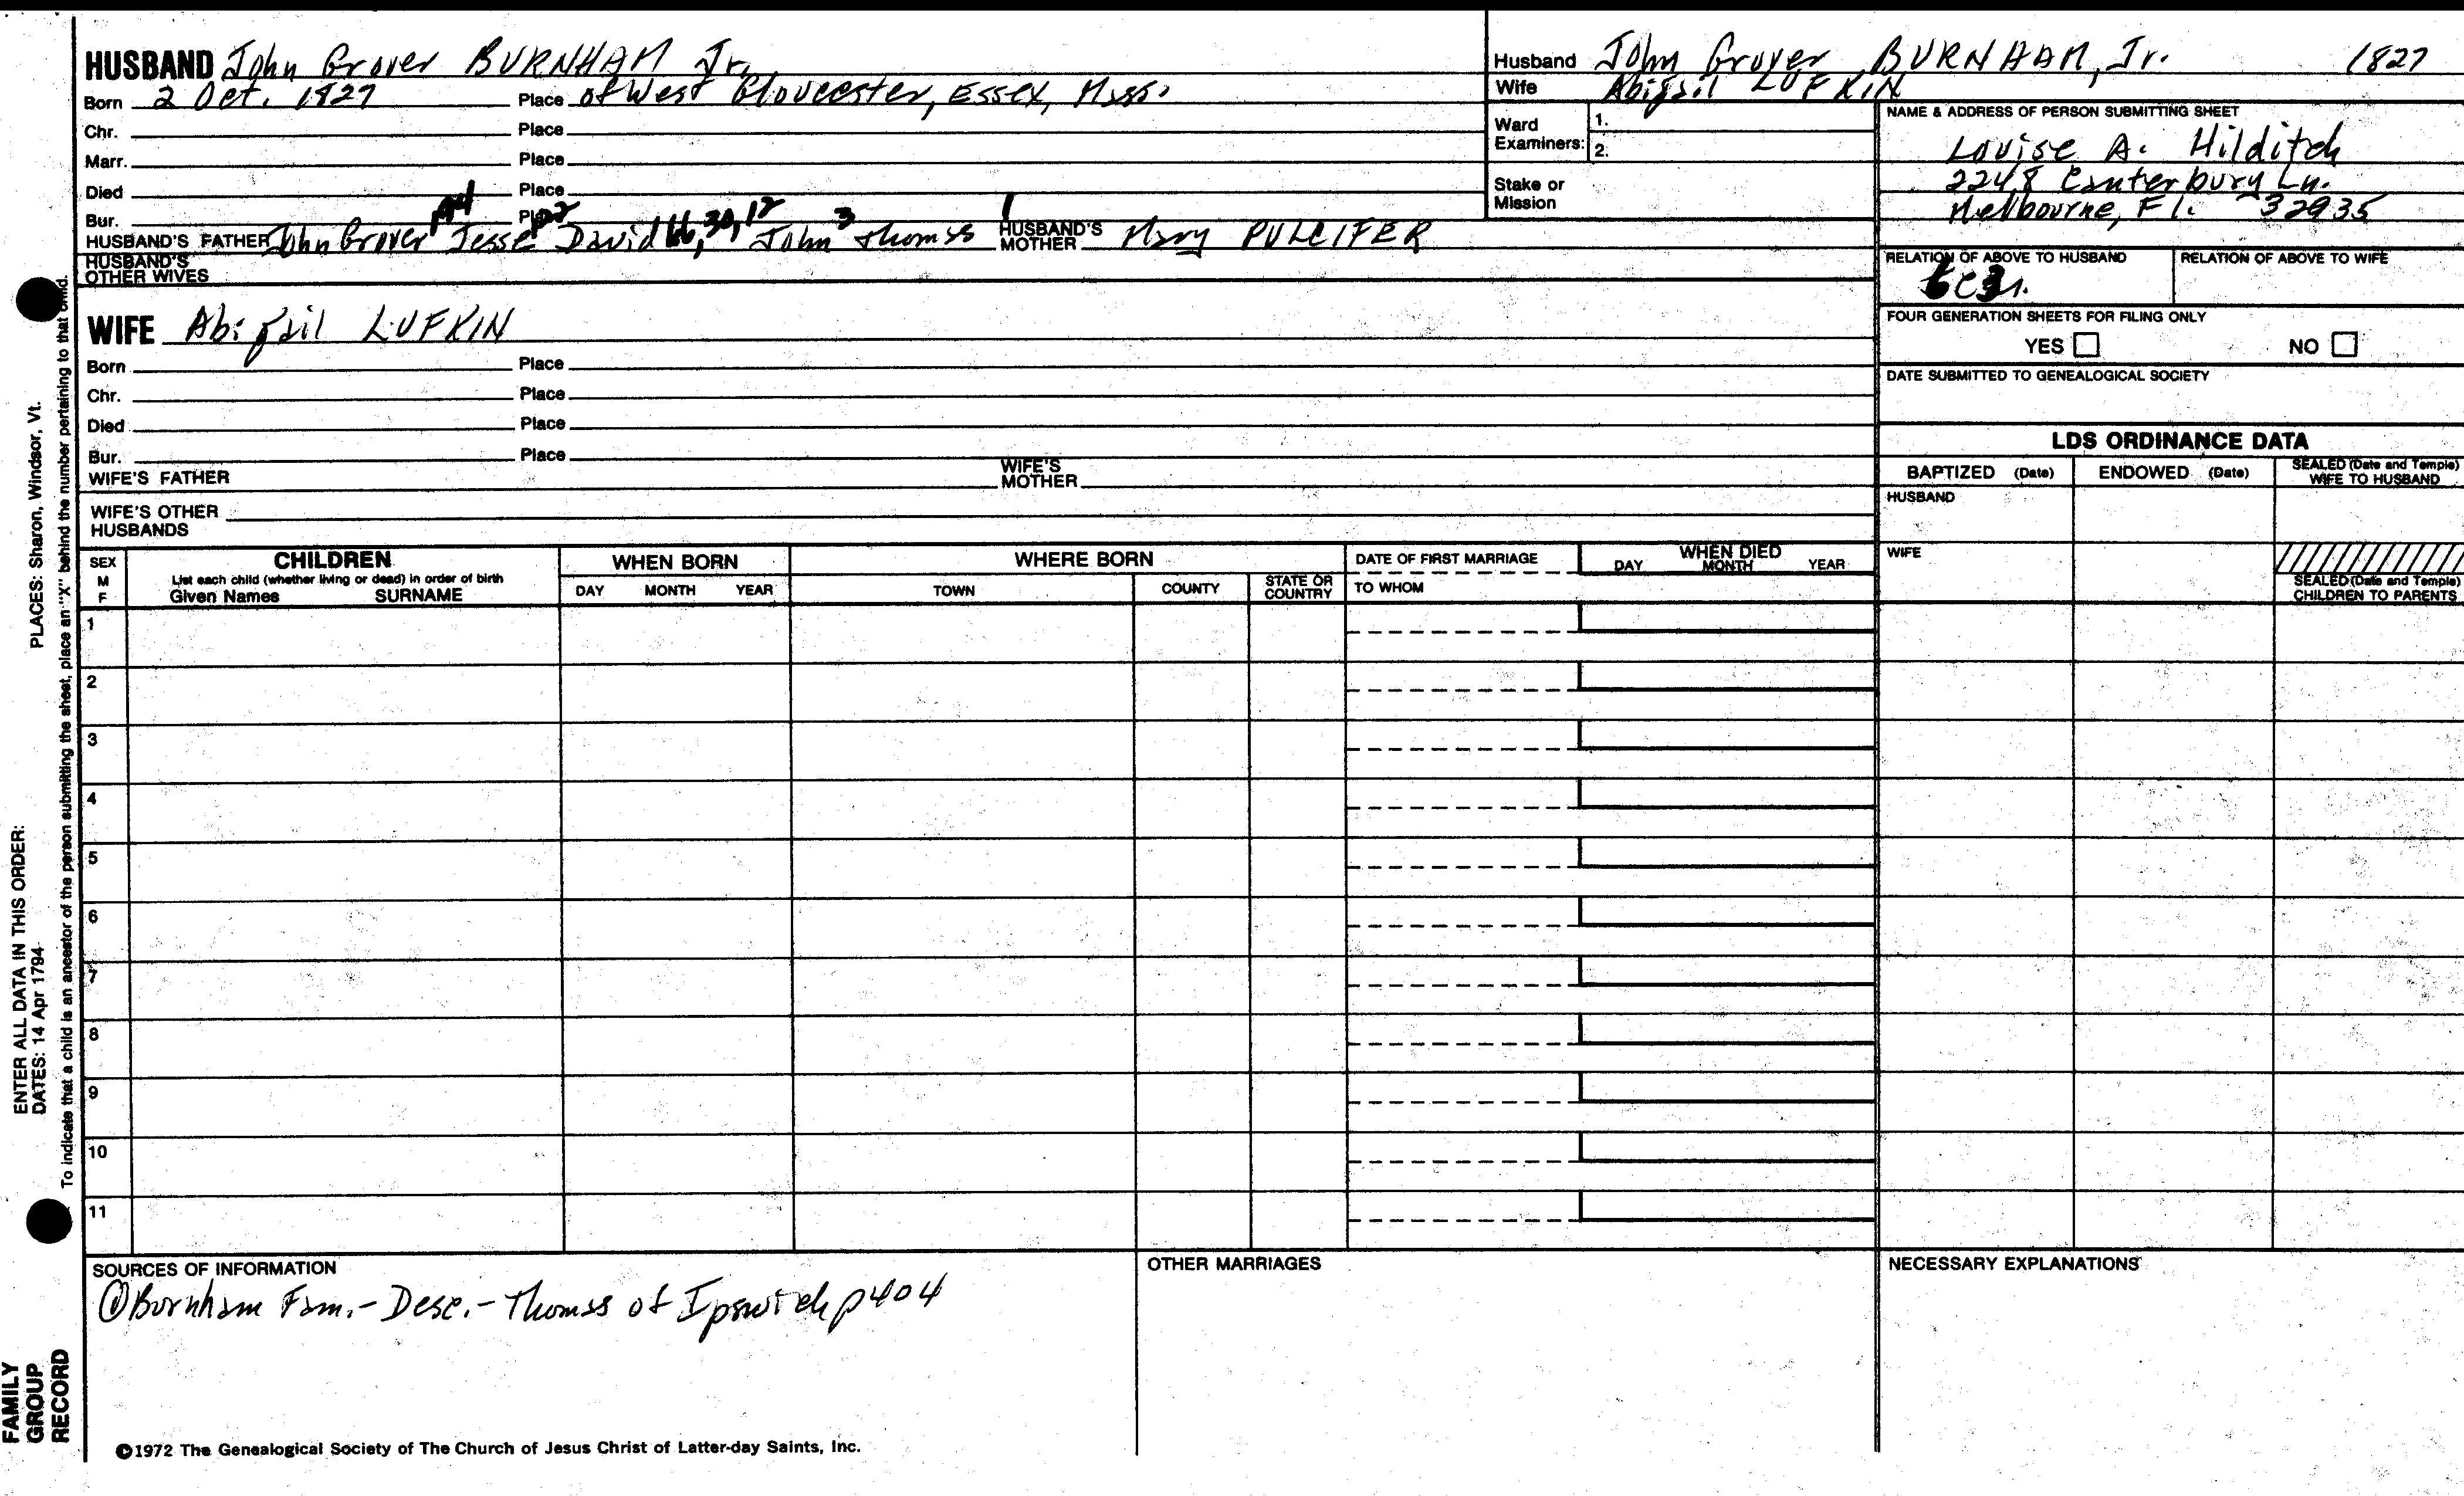 HUSBAND John Grover BURNHAM Jr.
Born 2 Oct. 1827 Place of West Gloucester, Essex, Mass.
Chr. Place
Marr. Place
Died Place
Bur. Place
HUSBAND'S FATHER John Grover, Jesse David 66, 30, 12 John 3 Thomas 1 HUSBAND'S MOTHER Mary PULCIFER
HUSBAND'S OTHER WIVES
WIFE Abigail LUFKIN
Born Place
Chr. Place
Died Place
Bur. Place
WIFE'S FATHER WIFE'S MOTHER
WIFE'S OTHER HUSBANDS
Husband John Grover BURNHAM, Jr. 1827
Wife Abigail LUFKIN
Ward Examiners: 1.
2.
Stake or Mission
NAME & ADDRESS OF PERSON SUBMITTING SHEET
Louise A. Hilditch
2248 Canterbury Ln.
Melbourne, Fl. 32935
RELATION OF ABOVE TO HUSBAND RELATION OF ABOVE TO WIFE
FOUR GENERATION SHEETS FOR FILING ONLY
YES NO
DATE SUBMITTED TO GENEALOGICAL SOCIETY
LDS ORDINANCE DATA
BAPTIZED (Date) ENDOWED (Date) SEALED (Date and Temple) WIFE TO HUSBAND
HUSBAND
WIFE
SEALED (Date and Temple) CHILDREN TO PARENTS
SEX M F CHILDREN WHEN BORN WHERE BORN DATE OF FIRST MARRIAGE WHEN DIED
List each child (whether living or dead) in order of birth
Given Names SURNAME DAY MONTH YEAR TOWN COUNTY STATE OR COUNTRY TO WHOM DAY MONTH YEAR
1
2
3
4
5
6
7
8
9
10
11
SOURCES OF INFORMATION
① Burnham Fam.- Desc.- Thomas of Ipswich p404
OTHER MARRIAGES
NECESSARY EXPLANATIONS
©1972 The Genealogical Society of The Church of Jesus Christ of Latter-day Saints, Inc.
FAMILY GROUP RECORD
ENTER ALL DATA IN THIS ORDER:
DATES: 14 Apr 1794
PLACES: Sharon, Windsor, Vt.
To indicate that a child is an ancestor of the person submitting the sheet, place an "X" behind the number pertaining to that child.